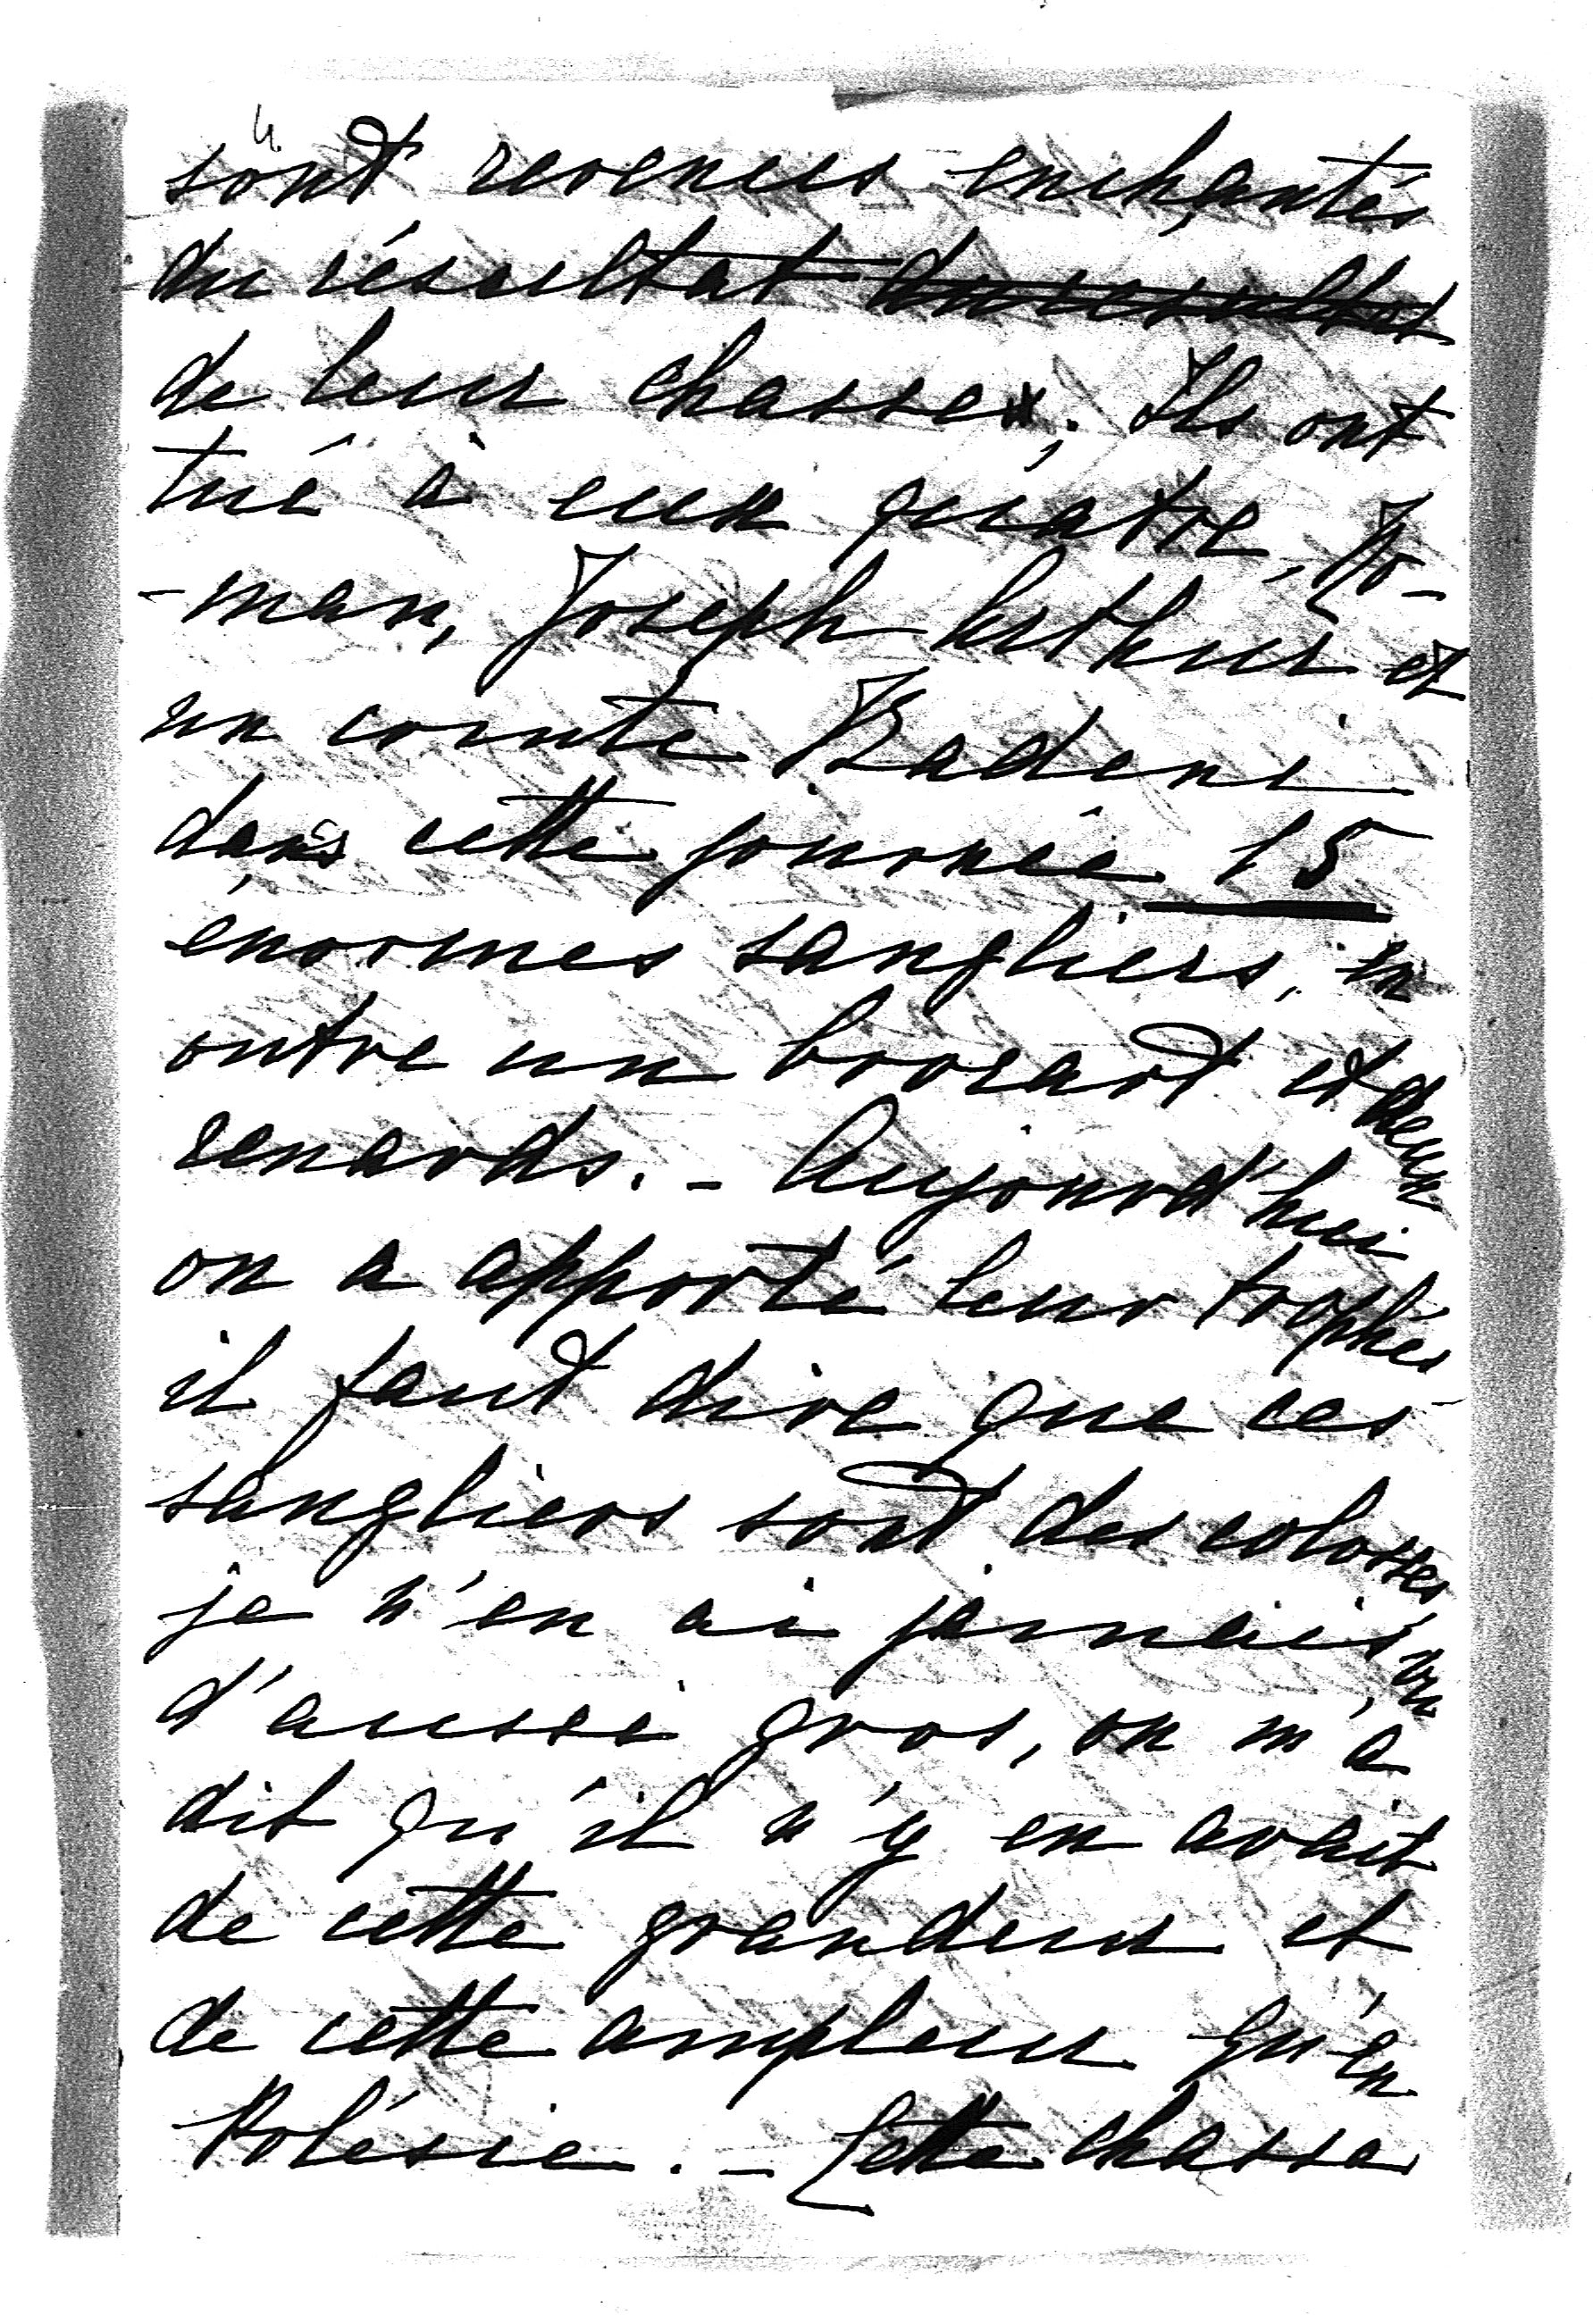 4.
sont revenus enchantés
du résultat du resultat
de leur chasse; Ils ont
tué à eux quatre, Ro-
-man, Joseph Arthur et
un comte Badeni
dans cette journée 15
énormes sangliers, en
outre un brocart et deux
renards. - Aujourd'hui
on a apporté leur trophées
il faut dire que ces
sangliers sont des colosses,
je n'en ai jamais vu
d'aussi gros, on m'a
dit qu'il n'y en avait
de cette grandeur et
de cette ampleur qu'en
Polésie. - Cette chasse